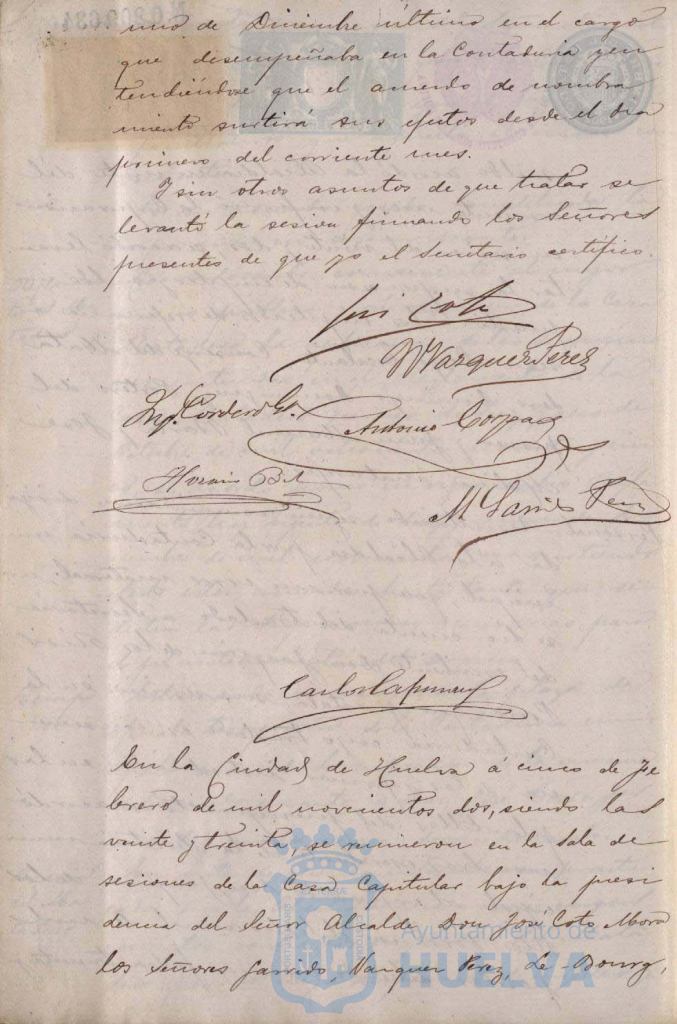 uno de Diciembre último en el cargo
que desempeñaba en la Contaduria yen
tendiéndose que el acuerdo de nombra
miento surtirá sus efectos desde el dia
primero del corriente mes.
Y sin otros asuntos de que tratar se
levantó la sesion firmando los Señores
presentes de que yo el Secretario certifico.
José Coto
Vazquez Perez
Cordero
Antonio
Horacio Bel
M Garrido Perez
Carlos
En la Ciudad de Huelva á cinco de Fe
brero de mil novecientos dos, siendo las
veinte y treinta, se reunieron en la Sala de
sesiones de la Casa Capitular bajo la presi
dencia del Señor Alcalde Don José Coto Mora
los Señores Garrido, Vazquez Perez, Le-Bourg,
Ayuntamiento de
HUELVA